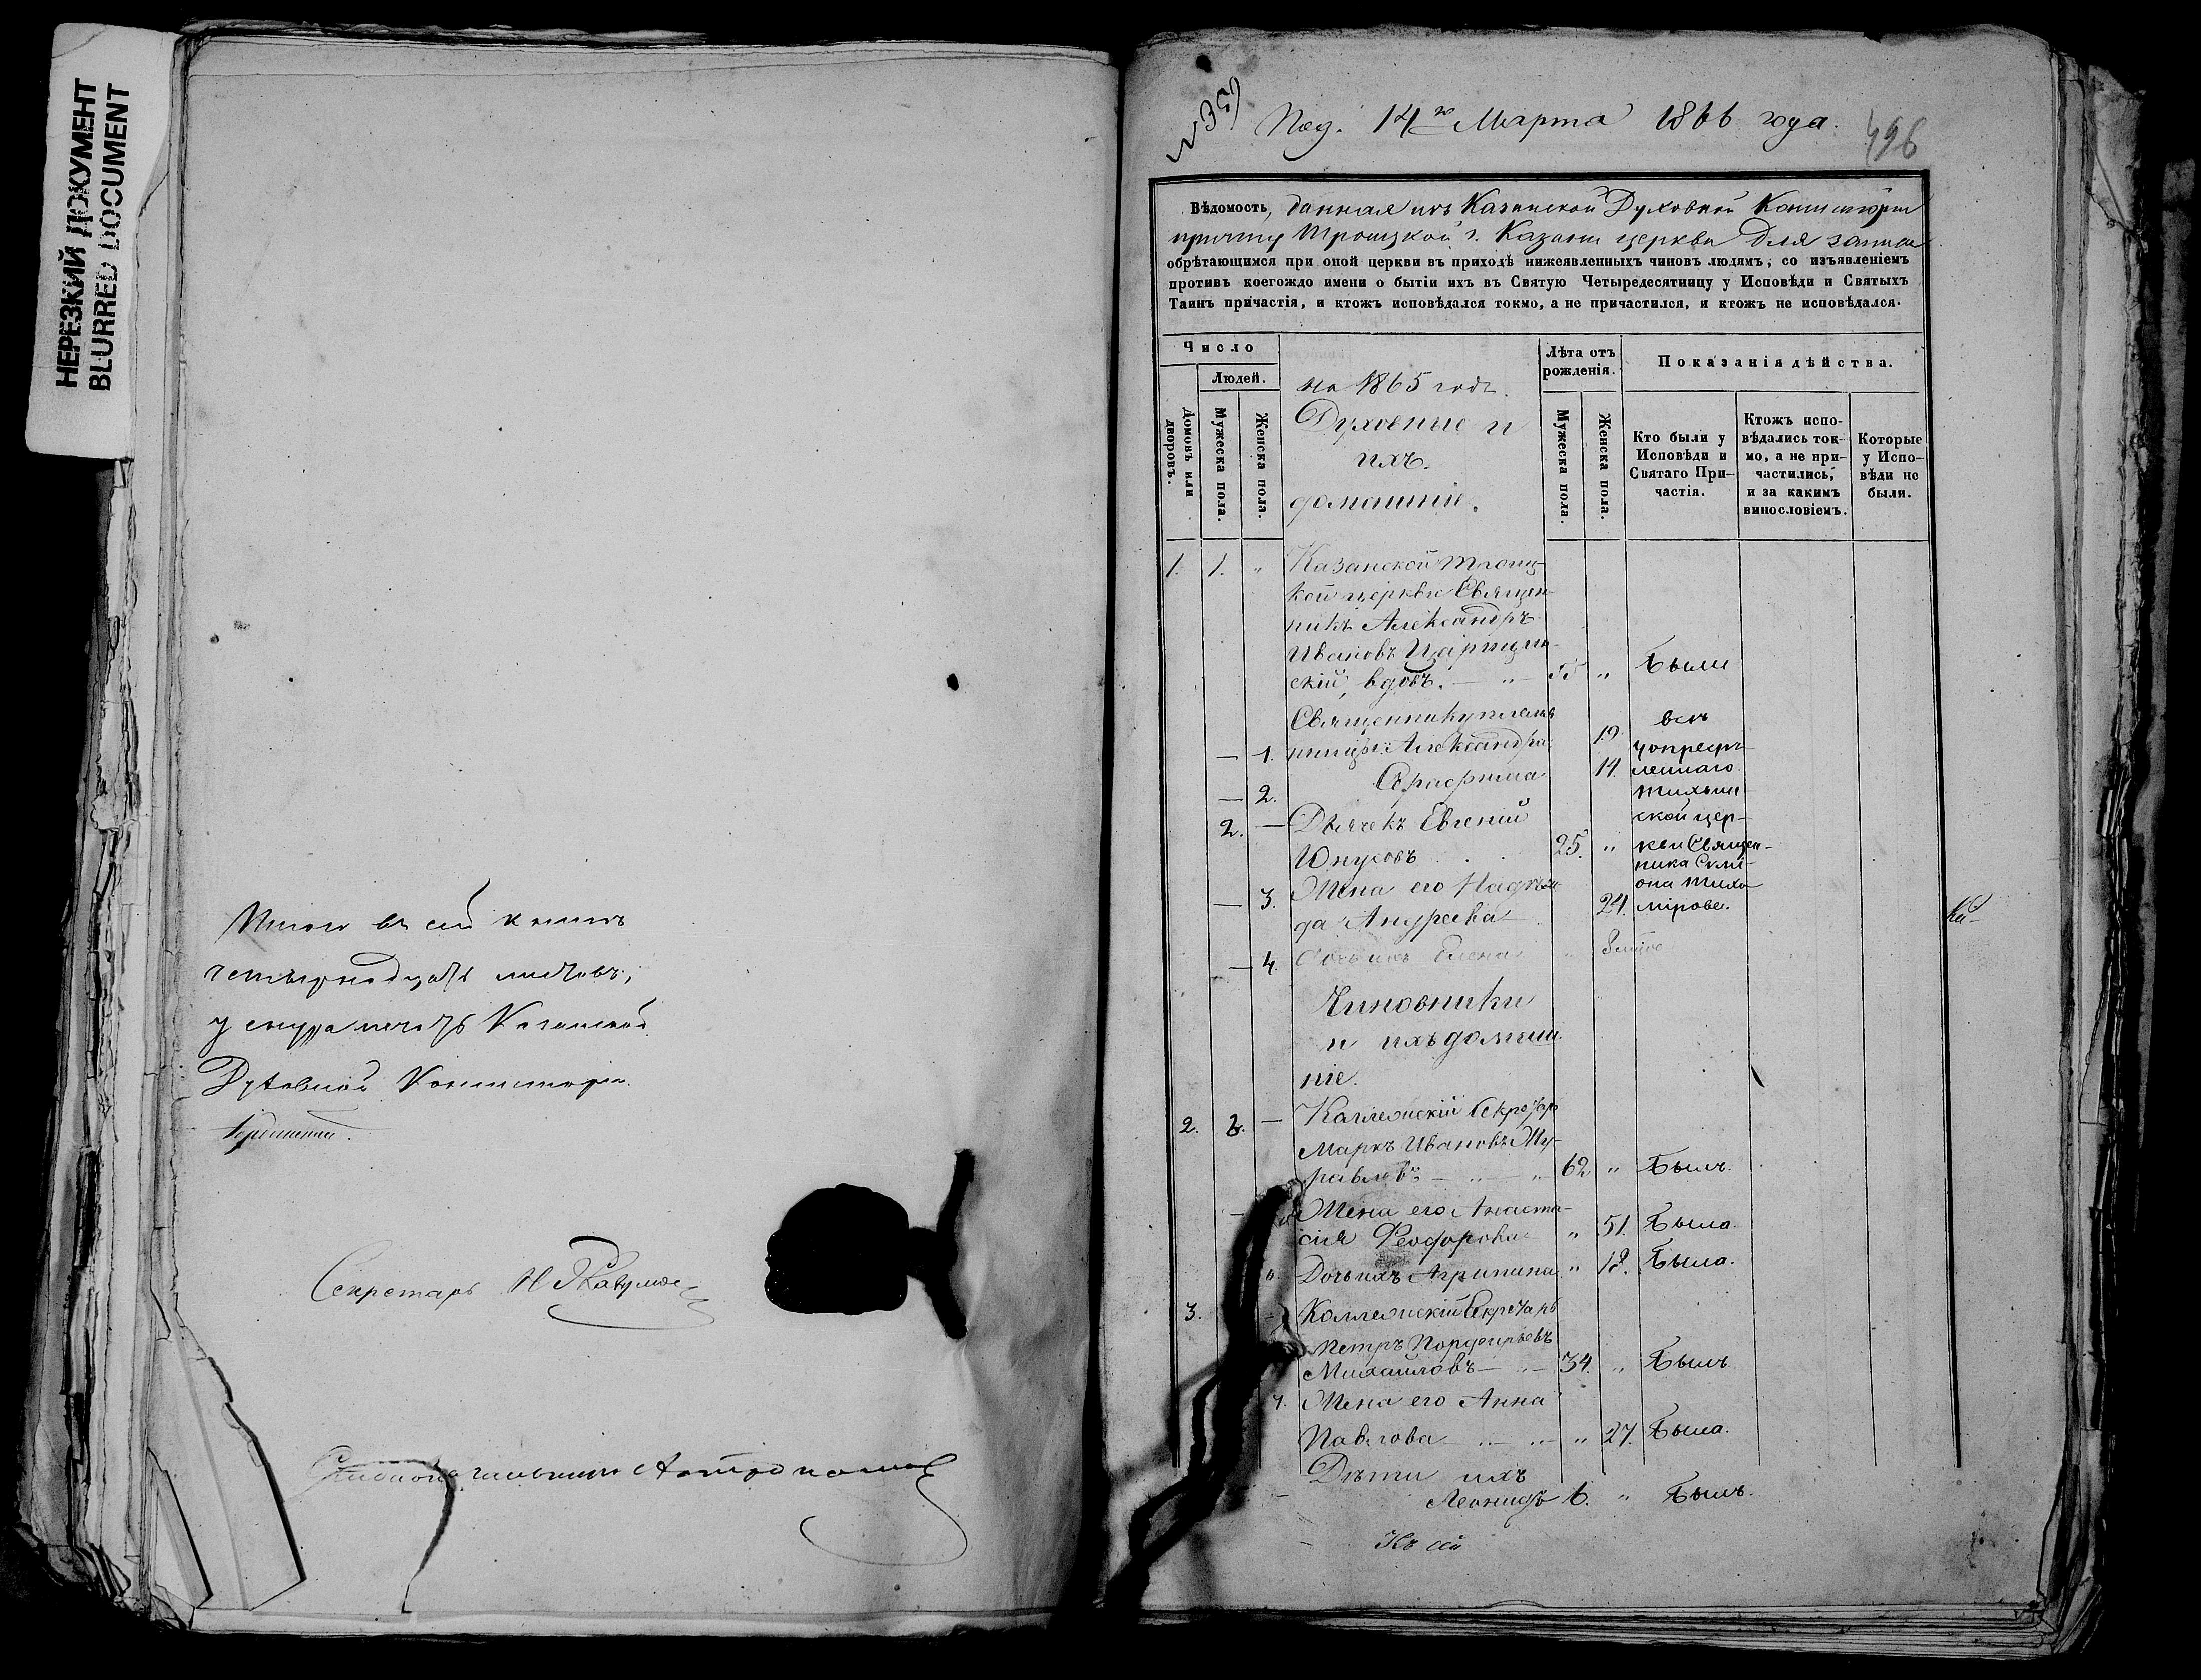 НЕРЕЗКИЙ ДОКУМЕНТ
BLURRED DOCUMENT
Итого въ сей книгѣ
четырнадцать листовъ,
у снура печать Казанской
Духовной Консисторіи.
Секретарь Н
Столоначальникъ Автрономов
№ 35)
Под. 14го Марта 1866 года.
496
Вѣдомость, данная изъ Казанской Духовной Консисторіи
причту Троицкой г. Казани церкви для записи
обрѣтающимся при оной церкви въ приходѣ нижеявленныхъ чиновъ людямъ, со изъявленіемъ
противъ коегождо имени о бытіи ихъ въ Святую Четыредесятницу у Исповѣди и Святыхъ
Таинъ причастія, и ктожъ исповѣдался токмо, а не причастился, и ктожъ не исповѣдался.
Число
Людей.
Домовъ или дворовъ.
Мужеска пола.
Женска пола.
на 1865 годъ.
Духовные и
ихъ
домашніе.
Лѣта отъ
рожденія.
Мужеска пола.
Женска пола.
Показанія дѣйства.
Кто были у
Исповѣди и
Святаго При-
частія.
Ктожъ испо-
вѣдались ток-
мо, а не при-
частились,
и за какимъ
винословіемъ.
Которые
у Испо-
вѣди не
были.
1. 1. " Казанской Троиц-
кой церкви Священ-
никъ Александръ
Ивановъ Царицын-
скій, вдовъ. — " — 55 " Были
Священнику племян-
— 1. ницы: Александра 19
— 2. Серафима 14
всѣ
у опредѣ-
леннаго
Тихвин-
ской цер-
кви Священ-
ника Симе-
она Тихо-
мірова.
2. — Дьячекъ Евгеній
Юнусовъ . . 25. "
— 3. Жена его Надеж-
да Андреева 24.
— 4. Дочь ихъ Елена "
Чиновники
и ихъ домаш
ніе.
2. 3. — Коллежскій Секретарь
Маркъ Ивановъ Жу-
равлевъ — " — " 62 " Былъ.
Жена его Анаста-
сія Феодорова " 51. Была.
6. Дочь ихъ Агрипина " 18. Была.
3. Коллежскій Секретарь
Петръ Порфирьевъ
Михайловъ — " — 34. " Былъ
7. Жена его Анна
Павлова — " — " 27. Была.
Дѣти ихъ
Леонидъ 6. " Былъ.
Къ сей
Ка-